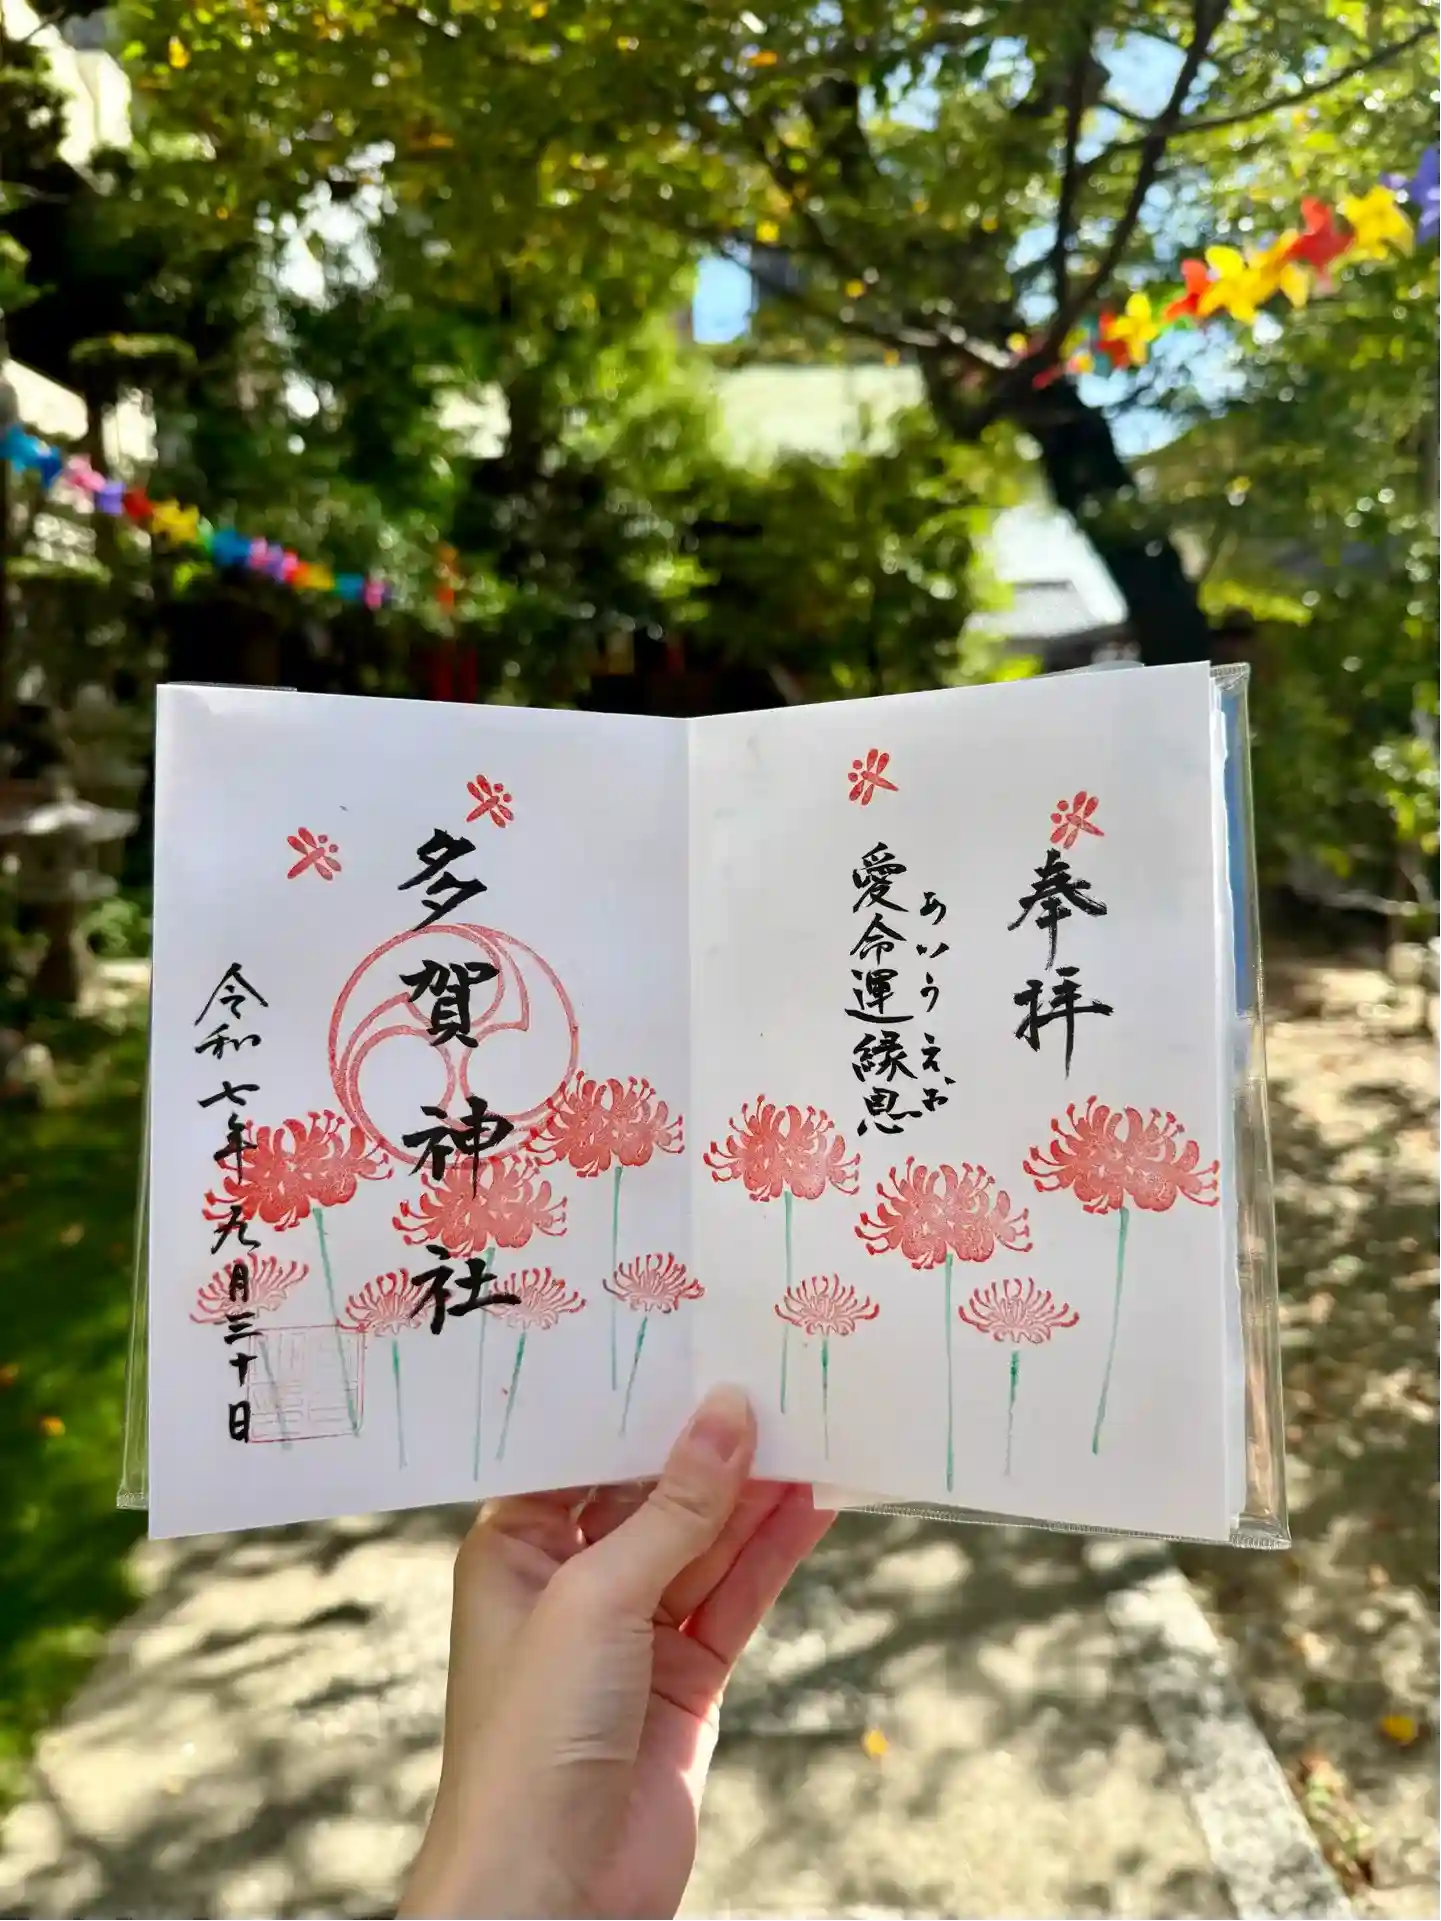 奉拝
あいうえお
愛命運縁恩
多賀神社
令和七年九月三十日